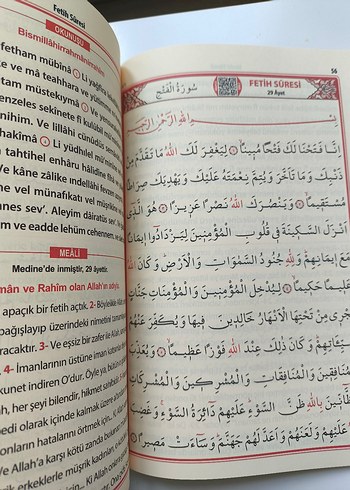 Fetih Sûresi
OKUNUŞU
Bismillâhirrahmânirrahîm
fetham mübînâ 1 Li yağfira
ke ve mâ teahhara ve yütimme
tam müstekıymâ 2 Ve yensurakellâhü
enzeles sekinete fî kulûbil mü'
nihim. Ve lillâhi cünûdüs semâ
hakîmâ 4 Li yüdhılel mü'minîne
tahtihel enhâru hâlidîne fîhâ
Ve kâne zâlike ındellâhi fevzen
ne vel münafıkati vel müşrikîne
nes sev'. Aleyim dâiratüs sev'
m ve eadde lehüm cehennem,
MEÂLİ
Medine'de inmiştir, 29 âyettir.
mân ve Rahîm olan Allah'ın adıyla
apaçık bir fetih açtık. 2- Böylelikle Allah
bağışlayıp üzerindeki nimetini tamamlar
caracaktır. 3- Ve eşsiz bir zafer ile Allah,
4- İmanlarının üstüne iman katarlar
kunet indiren O'dur. Öyle ya, bütün
ah, her şeyi bilendir, hikmet sahibidir.
edi olarak içinde kalmak üzere altından
onların hatalarını örtmek için...
Ve Allah'a karşı kötü zanda bulunan
k erkeklerle müşrik kadınları,
56
سُورَةُ الْفَتْحِ
FETİH SÛRESİ
29 Âyet
بِسْمِ اللهِ الرَّحْمٰنِ الرَّحِيمِ
اِنَّا فَتَحْنَا لَكَ فَتْحًا مُبِينًا ۝ لِيَغْفِرَ لَكَ اللهُ مَا تَقَدَّمَ مِنْ
ذَنْبِكَ وَمَا تَاَخَّرَ وَيُتِمَّ نِعْمَتَهُ عَلَيْكَ وَيَهْدِيَكَ صِرَاطًا
مُسْتَقِيمًا ۝ وَيَنْصُرَكَ اللهُ نَصْرًا عَزِيزًا ۝ هُوَ الَّذِى
اَنْزَلَ السَّكِينَةَ فِى قُلُوبِ الْمُؤْمِنِينَ لِيَزْدَادُوا اِيمَانًا
مَعَ اِيمَانِهِمْ وَلِلّٰهِ جُنُودُ السَّمٰوَاتِ وَالْاَرْضِ وَكَانَ اللهُ
عَلِيمًا حَكِيمًا ۝ لِيُدْخِلَ الْمُؤْمِنِينَ وَالْمُؤْمِنَاتِ جَنَّاتٍ
تَجْرِى مِنْ تَحْتِهَا الْاَنْهَارُ خَالِدِينَ فِيهَا وَيُكَفِّرَ عَنْهُمْ
سَيِّئَاتِهِمْ وَكَانَ ذٰلِكَ عِنْدَ اللهِ فَوْزًا عَظِيمًا ۝ وَيُعَذِّبَ
الْمُنَافِقِينَ وَالْمُنَافِقَاتِ وَالْمُشْرِكِينَ وَالْمُشْرِكَاتِ
الظَّانِّينَ بِاللهِ ظَنَّ السَّوْءِ عَلَيْهِمْ دَائِرَةُ السَّوْءِ وَغَضِبَ
عَلَيْهِمْ وَلَعَنَهُمْ وَاَعَدَّ لَهُمْ جَهَنَّمَ وَسَاءَتْ مَصِيرًا